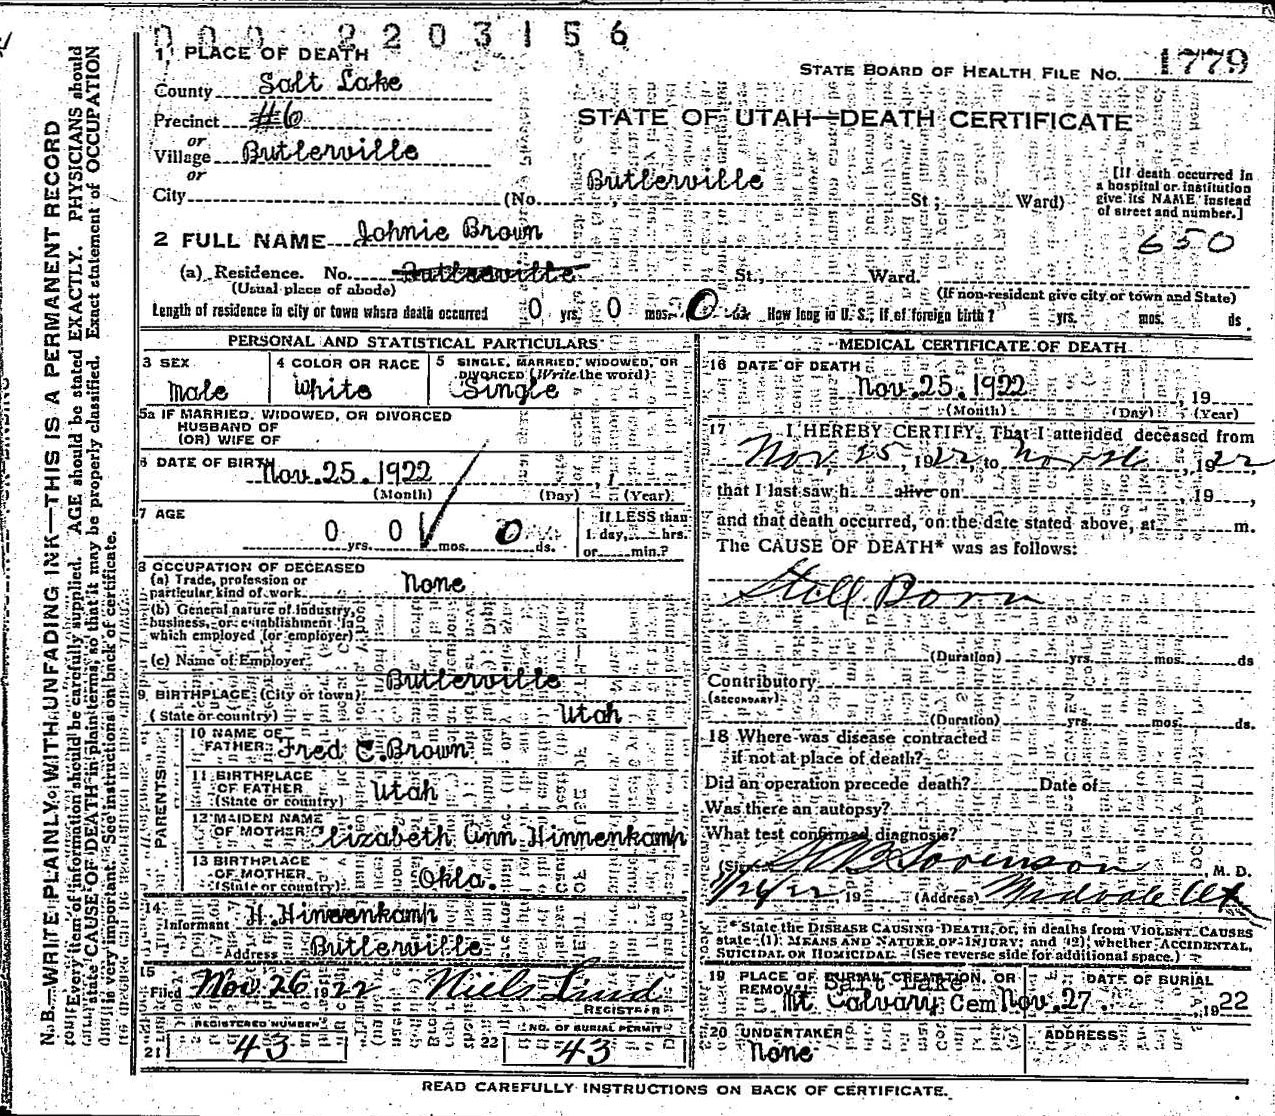 000 2203156
1779
1 PLACE OF DEATH
STATE BOARD OF HEALTH FILE NO.
County Salt Lake
Precinct #6
STATE OF UTAH—DEATH CERTIFICATE
or
Village Butlerville
or
City (No. Butlerville St.; Ward)
[If death occurred in
a hospital or institution
give its NAME instead
of street and number.]
2 FULL NAME Johnie Brown
650
(a) Residence. No. Butlerville St., Ward.
(Usual place of abode)
(If non-resident give city or town and State)
Length of residence in city or town where death occurred 0 yrs. 0 mos. 0 ds. How long in U. S., if of foreign birth? yrs. mos. ds.
PERSONAL AND STATISTICAL PARTICULARS
3 SEX
Male
4 COLOR OR RACE
White
5 SINGLE, MARRIED, WIDOWED, OR
DIVORCED (Write the word)
Single
5a IF MARRIED, WIDOWED, OR DIVORCED
HUSBAND OF
(OR) WIFE OF
6 DATE OF BIRTH
Nov. 25. 1922
(Month) (Day) (Year)
7 AGE
0 yrs. 0 mos. 0 ds.
If LESS than
1 day, hrs.
or min.?
8 OCCUPATION OF DECEASED
(a) Trade, profession or
particular kind of work None
(b) General nature of industry,
business, or establishment in
which employed (or employer)
(c) Name of Employer
Butlerville
9 BIRTHPLACE (City or town)
(State or country) Utah
PARENTS
10 NAME OF
FATHER Fred C. Brown
11 BIRTHPLACE
OF FATHER
(State or country) Utah
12 MAIDEN NAME
OF MOTHER Elizabeth Ann Hinnenkamp
13 BIRTHPLACE
OF MOTHER
(State or country) Okla.
14
Informant H. Hinnenkamp
Address Butlerville
15
Filed Nov 26 1922 Niels Lind
REGISTRAR
REGISTERED NUMBER
21 43
NO. OF BURIAL PERMIT
22 43
MEDICAL CERTIFICATE OF DEATH
16 DATE OF DEATH
Nov. 25. 1922, 19
(Month) (Day) (Year)
17 I HEREBY CERTIFY, That I attended deceased from
Nov. 25, 1922, to , 1922
that I last saw h alive on , 19 ,
and that death occurred, on the date stated above, at m.
The CAUSE OF DEATH* was as follows:
Still Born
(Duration) yrs. mos. ds
Contributory
(SECONDARY)
(Duration) yrs. mos. ds.
18 Where was disease contracted
if not at place of death?
Did an operation precede death? Date of
Was there an autopsy?
What test confirmed diagnosis?
Sorenson, M. D.
/26/22 19 (Address) Midvale Ut
* State the DISEASE CAUSING DEATH, or, in deaths from VIOLENT CAUSES
state (1) MEANS AND NATURE OF INJURY; and (2) whether ACCIDENTAL,
SUICIDAL OR HOMICIDAL. (See reverse side for additional space.)
19 PLACE OF BURIAL, CREMATION, OR
REMOVAL Salt Lake
Mt Calvary Cem
DATE OF BURIAL
Nov. 27. , 1922
20 UNDERTAKER
None
ADDRESS
READ CAREFULLY INSTRUCTIONS ON BACK OF CERTIFICATE.
N. B.—WRITE PLAINLY, WITH UNFADING INK—THIS IS A PERMANENT RECORD
Every item of information should be carefully supplied. AGE should be stated EXACTLY. PHYSICIANS should
state CAUSE OF DEATH in plain terms, so that it may be properly classified. Exact statement of OCCUPATION
is very important. See instructions on back of certificate.